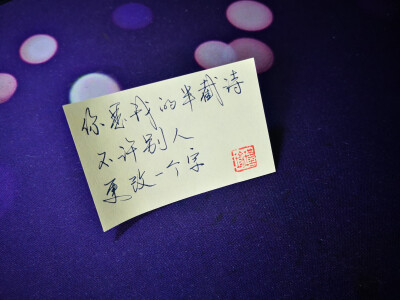 你是我的半截诗
不许别人
更改一个字